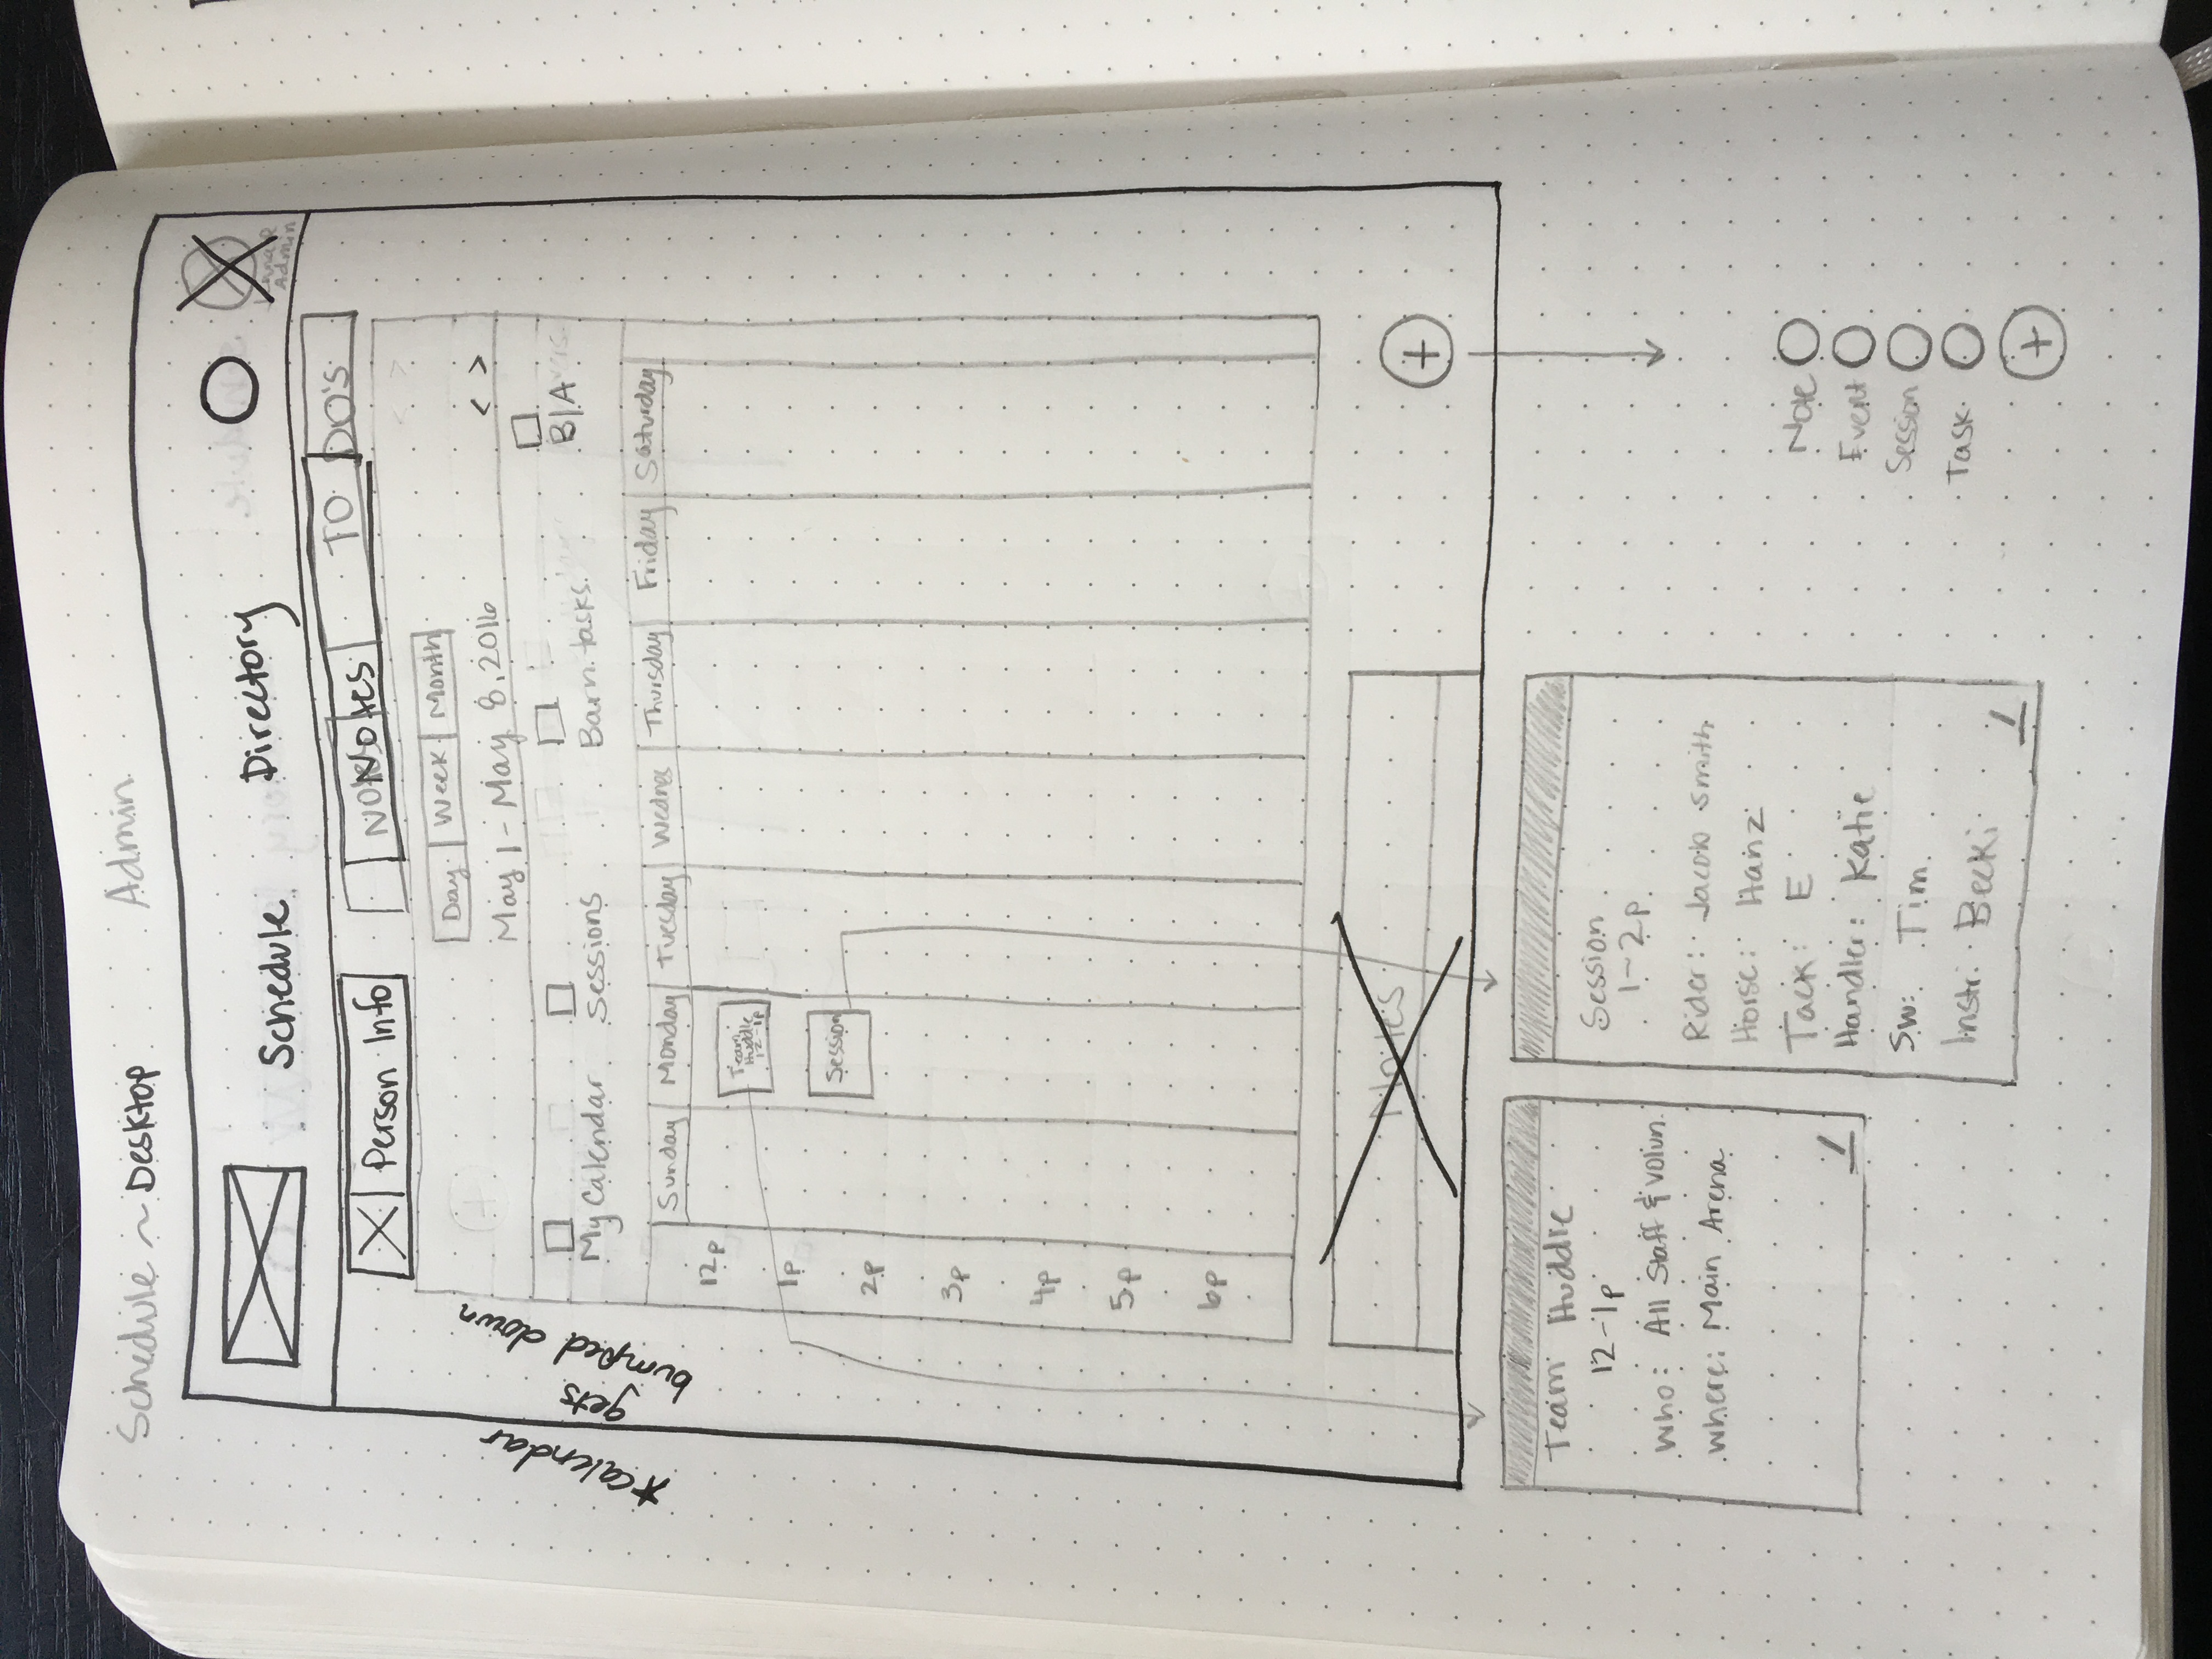 Schedule ~ Desktop
Admin
Schedule
Directory
Admin
Person Info
Notes
Notes
TO DO'S
Day
Week
Month
May 1 - May 8, 2016
< >
* calendar
gets
bumped down
My Calendar
Sessions
Barn tasks
B|A
Sunday
Monday
Tuesday
Wednes
Thursday
Friday
Saturday
12p
Team
Huddle
12-1p
1p
Session
2p
3p
4p
5p
6p
Notes
+
Team Huddle
12-1p
who: All Staff & Volun.
where: Main Arena
Session
1-2p
Rider: Jacob Smith
Horse: Hanz
Tack: E
Handler: Katie
SW: Tim
Instr: Becki
Note
Event
Session
Task
+